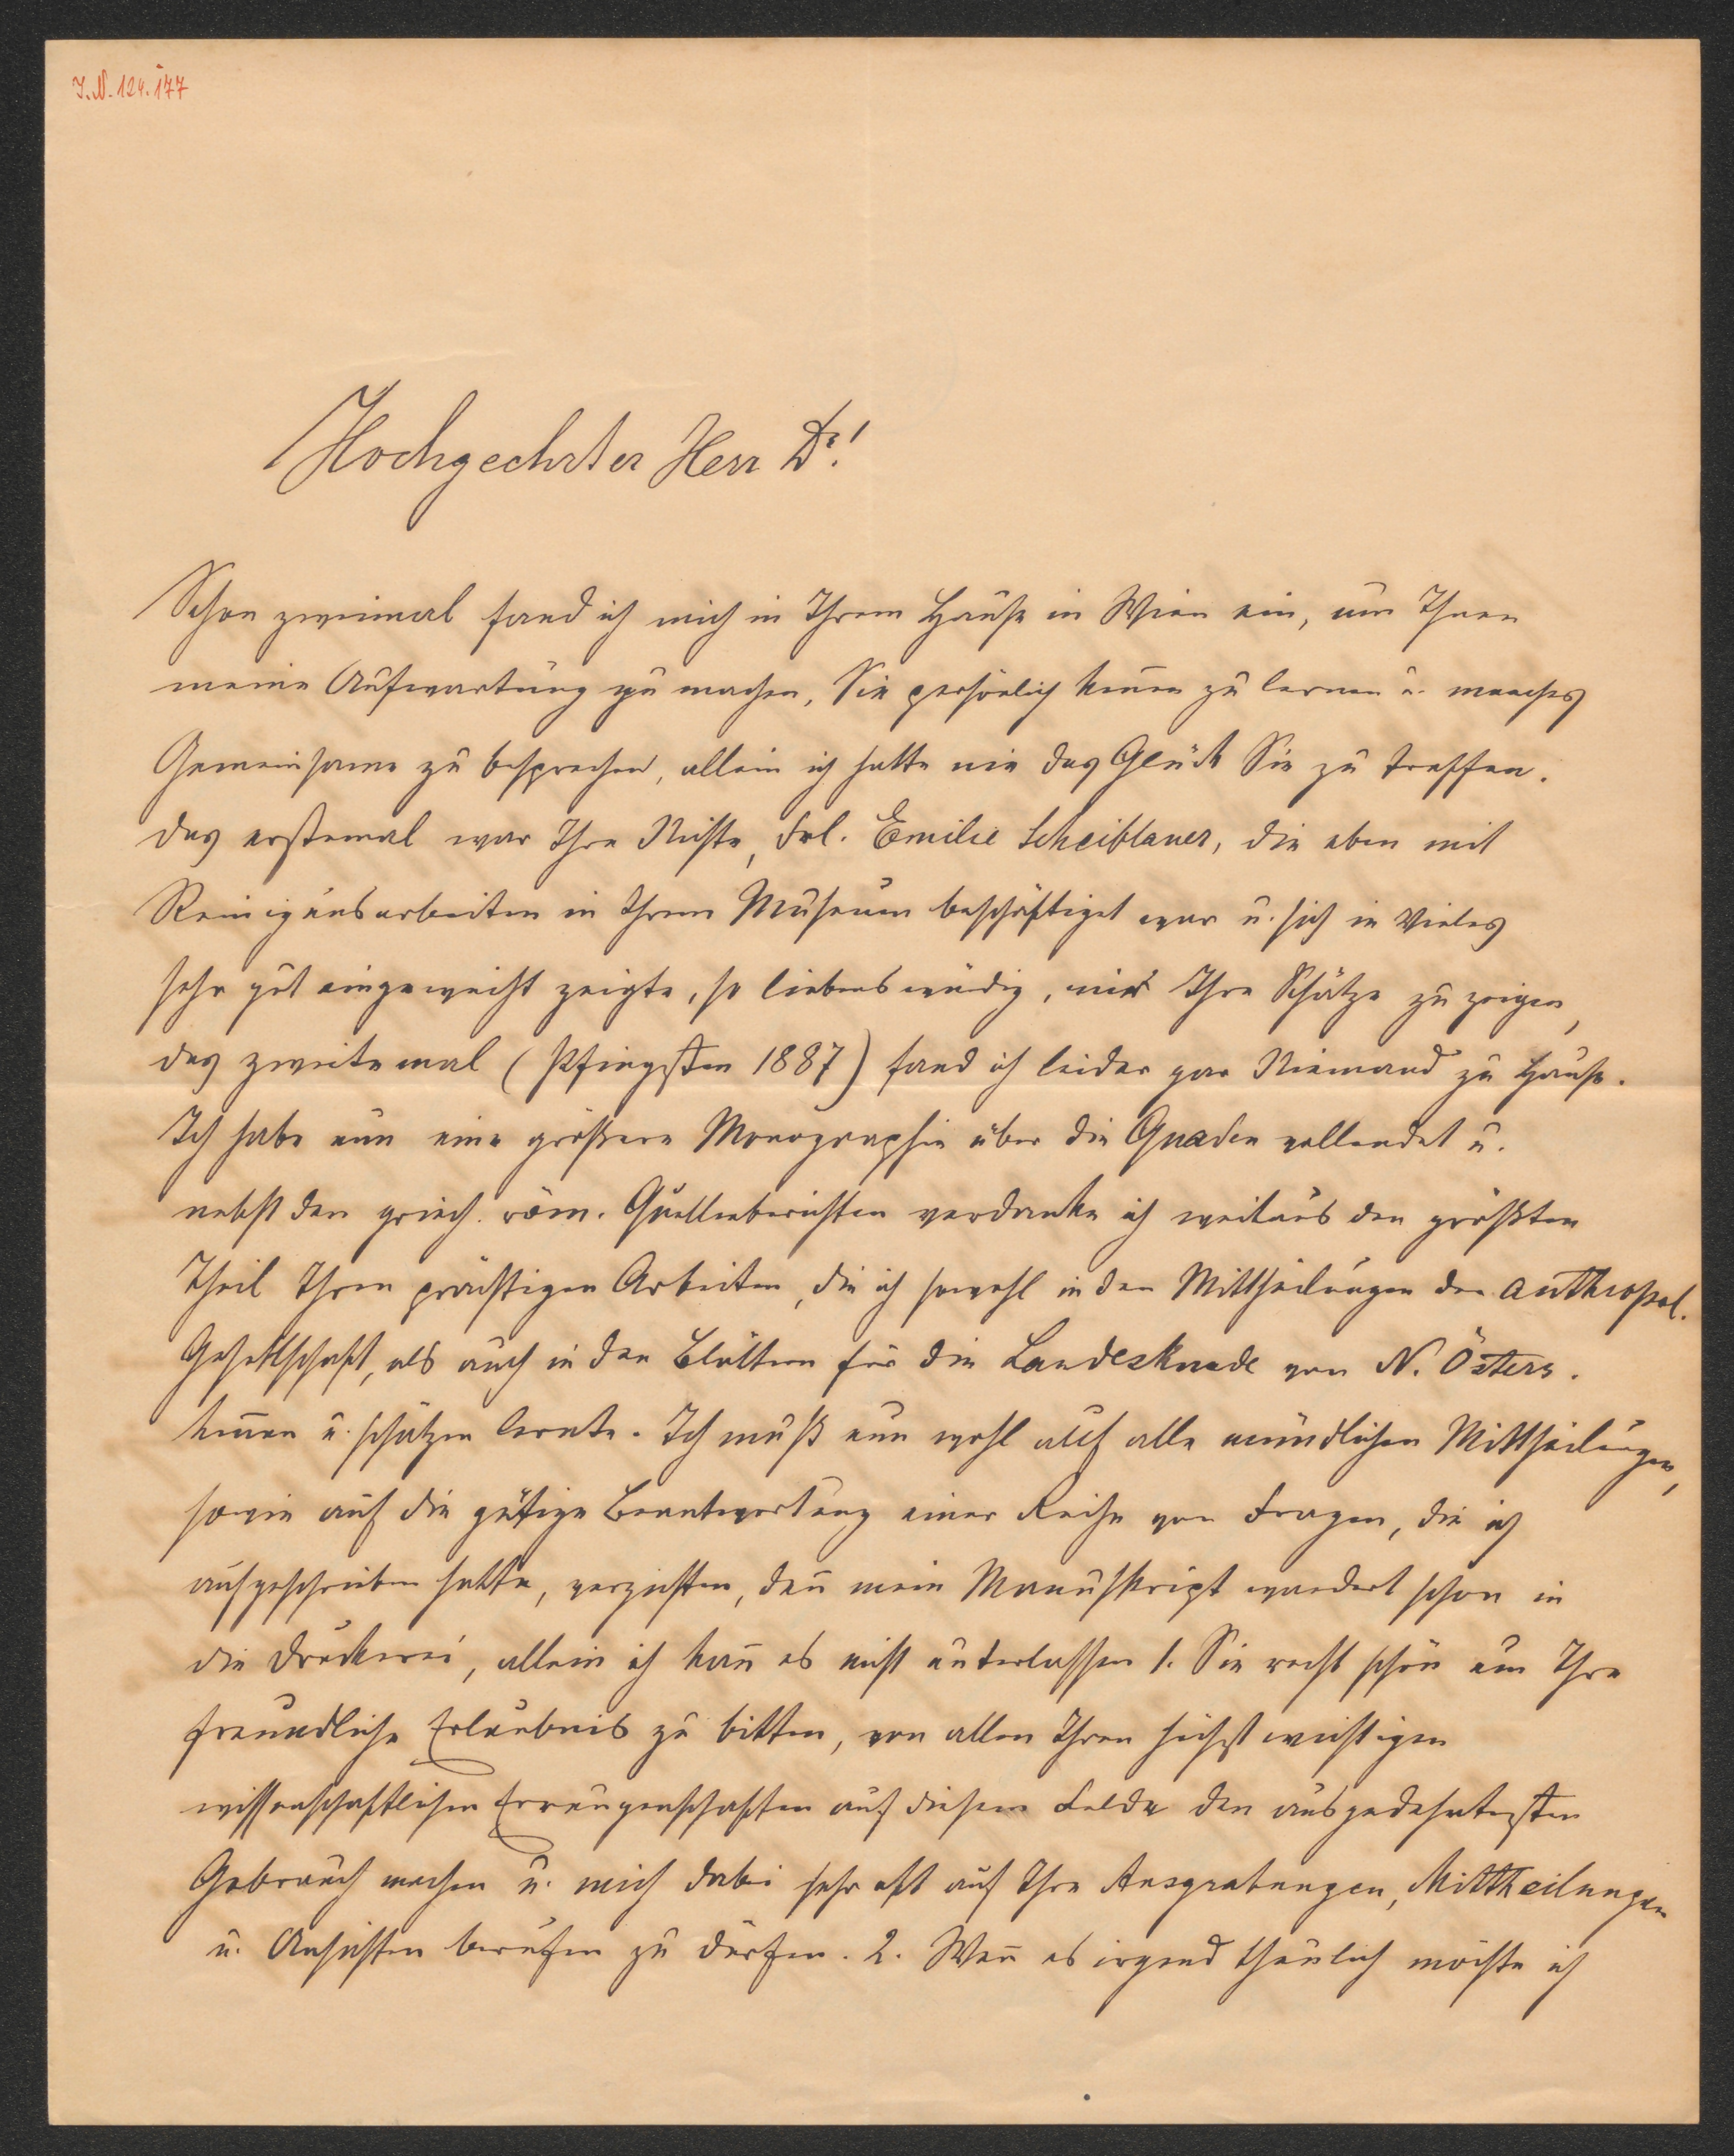 I.N. 124.177
Hochgeehrter Herr Dr!
Schon zweimal fand ich mich in Ihrem Hause in Wien ein, um Ihnen
meine Aufwartung zu machen, Sie persönlich kennen zu lernen u. manches
Gemeinsame zu besprechen, allein ich hatte nie das Glück Sie zu treffen.
Das erstemal war Ihre Nichte, Frl. Emilie Scheiblauer, die eben mit
Reinigunsarbeiten in Ihrem Museum beschäftiget war u. sich in Vieles
sehr gut eingeweiht zeigte, so liebenswürdig, mir Ihre Schätze zu zeigen,
das zweitemal (Pfingsten 1887) fand ich leider gar Niemand zu Hause.
Ich habe nun eine größere Monographie über die Quaden vollendet u.
nebst den griech. röm. Quellenberichten verdanke ich weitaus den größten
Theil Ihren prächtigen Arbeiten, die ich sowohl in den Mittheilungen der anthropol.
Gesellschaft, als auch in den Blättern für die Landeskunde von N. Österr.
kennen u. schätzen lernte. Ich muß nun wohl auf alle mündlichen Mittheilungen,
sowie auf die gütige Beantwortung einer Reihe von Fragen, die ich
aufgeschrieben hatte, verzichten, den̄ mein Manuskript wandert schon in
die Druckerei, allein ich kan̄ es nicht unterlassen 1. Sie recht schön um Ihre
freundliche Erlaubnis zu bitten, von allen Ihren höchst wichtigen
wissenschaftlichen Errungenschaften auf diesem Felde den ausgedehntesten
Gebrauch machen u. mich dabei sehr oft auf Ihre Ausgrabungen, Mittheilungen
u. Ansichten berufen zu dürfen. 2. Wen̄ es irgend thunlich möchte ich